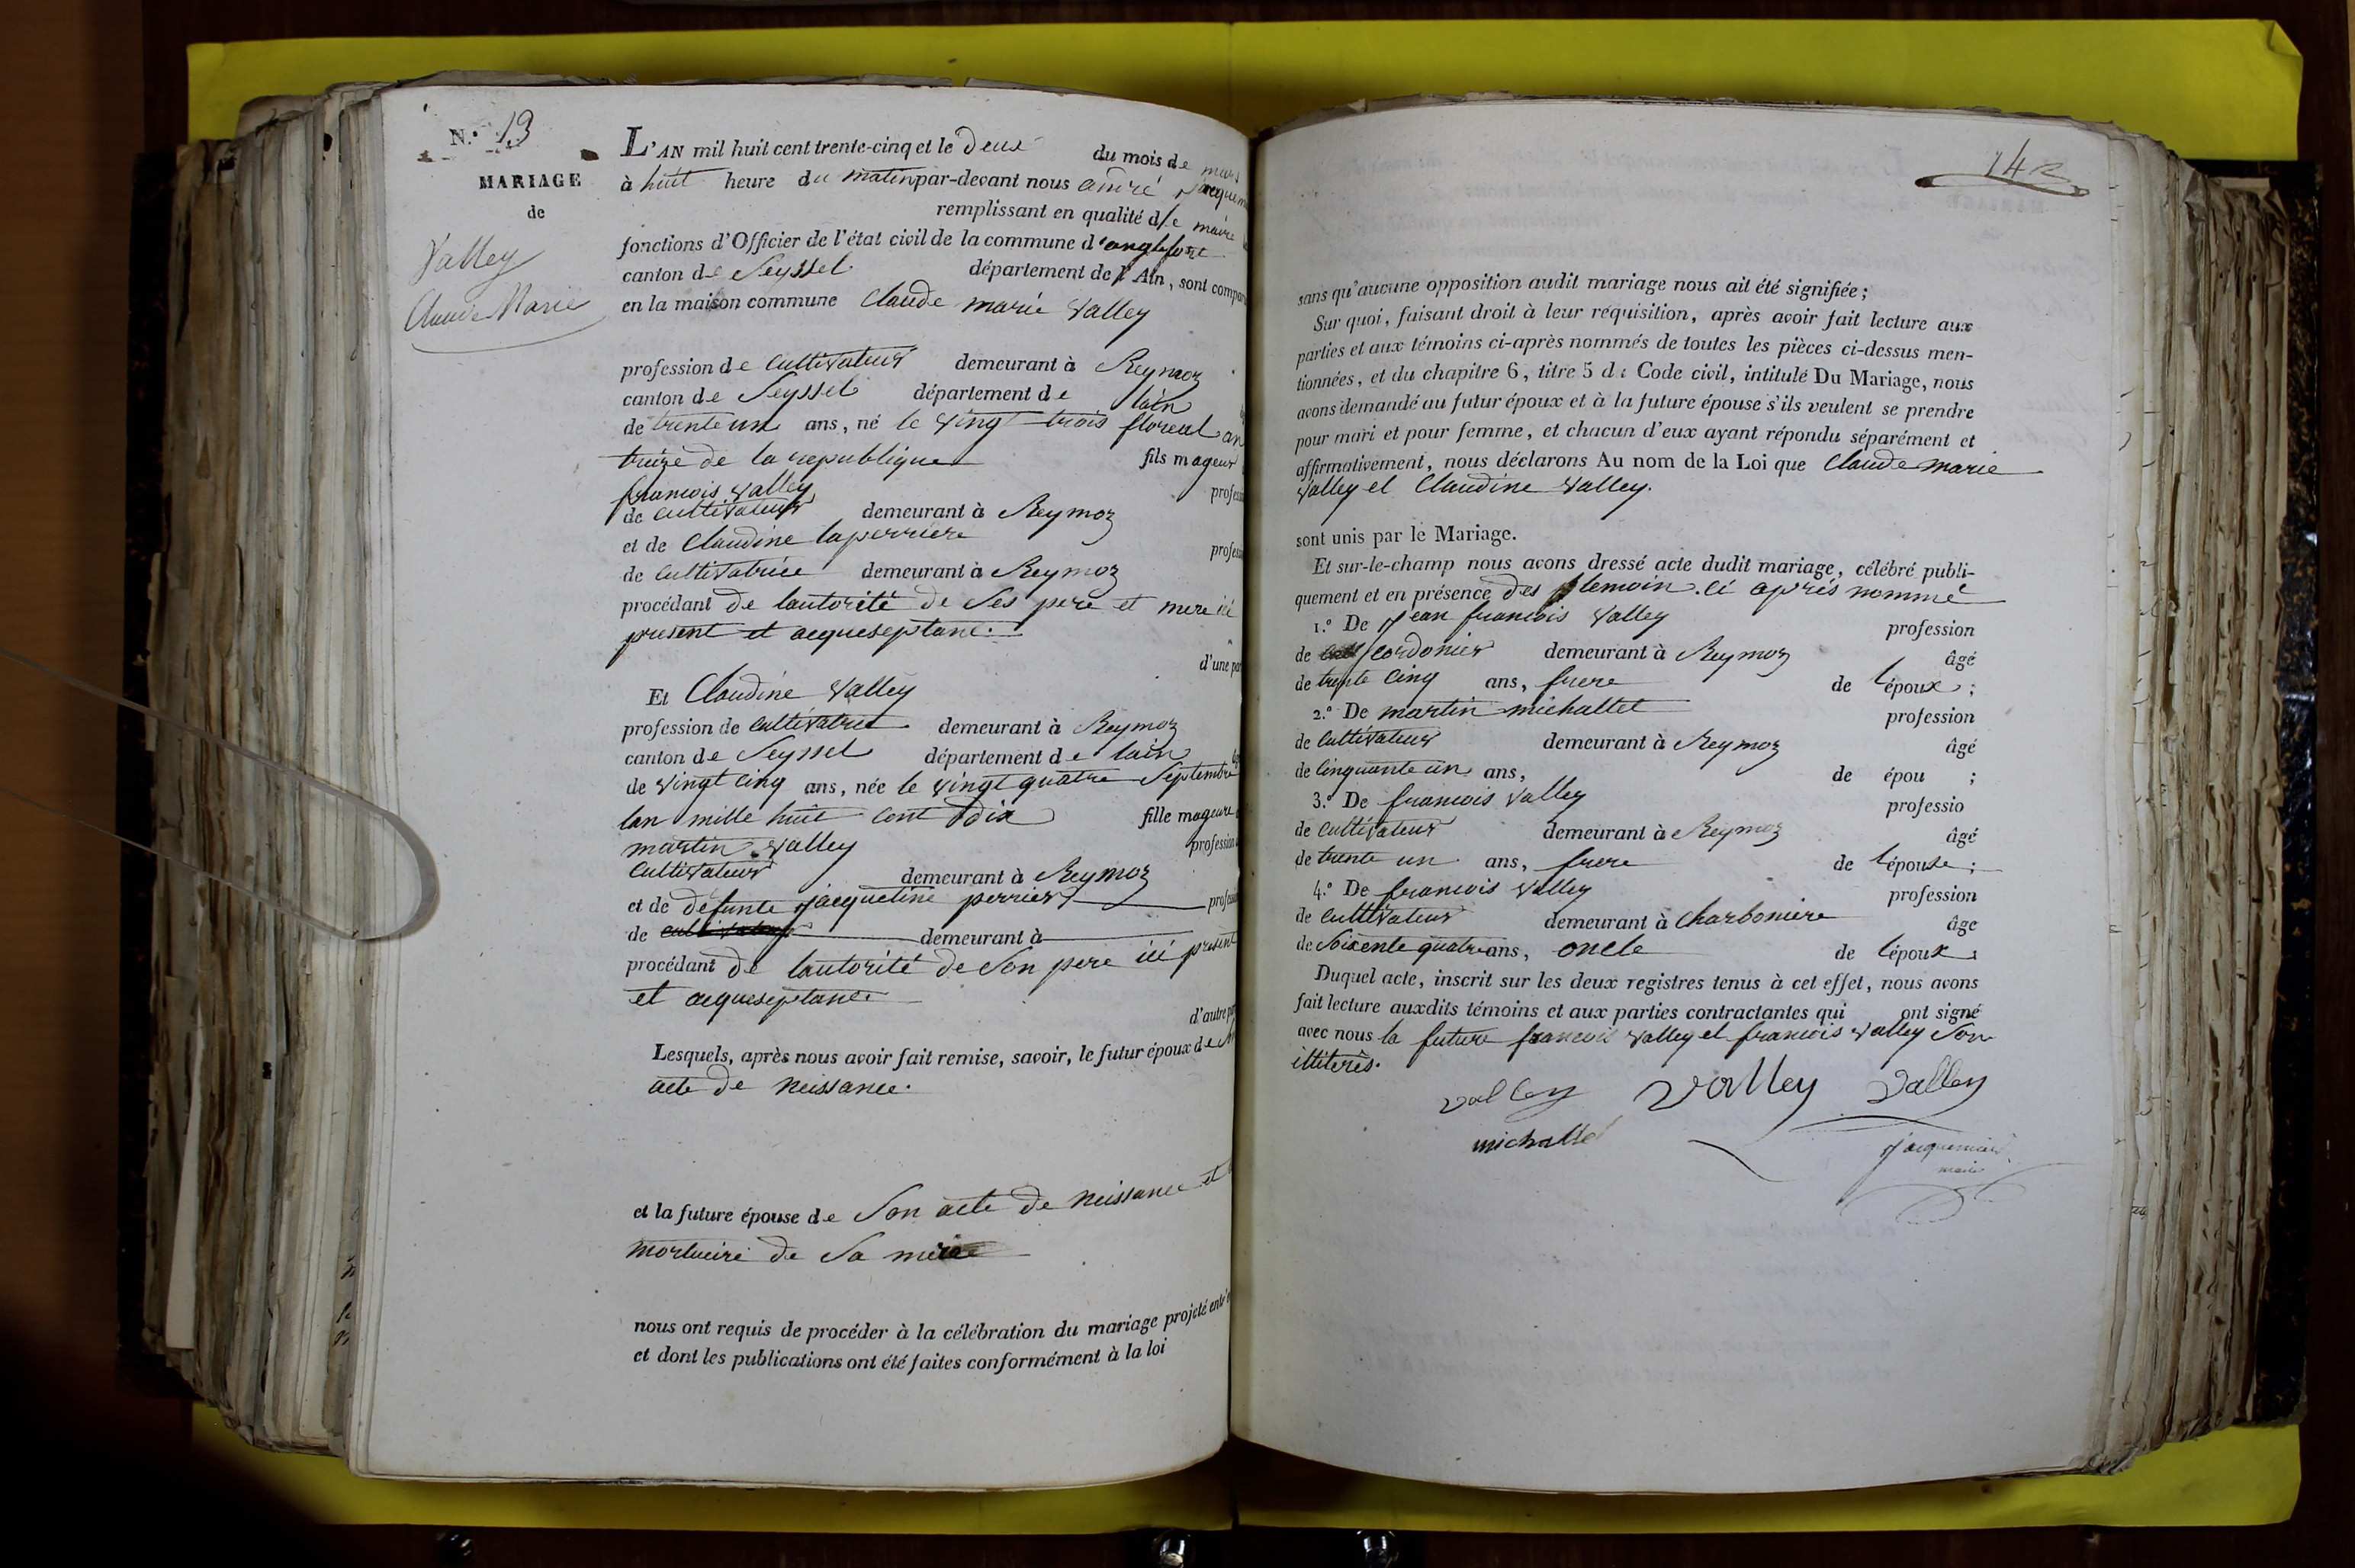 N.° 13
MARIAGE
de
Valley
Claude Marie
L'AN mil huit cent trente-cinq et le deux du mois de mars
à huit heure du matin par-devant nous andré jacquem
remplissant en qualité de maire
fonctions d'Officier de l'état civil de la commune d'anglefort
canton de Seyssel département de l'Ain, sont compar
en la maison commune Claude marie Valley
profession de cultivateur demeurant à Reymoz
canton de Seyssel département de lain
de trente un ans, né le vingt trois floreal an
treize de la republique fils mageur
francois valley profess
de cultivateur demeurant à Reymoz
et de Claudine laperriere profess
de cultivatrice demeurant à Reymoz
procédant de lautorité de Ses pere et mere ici
present et acqueseptant.
d'une par
Et Claudine Valley
profession de cultivatrice demeurant à Reymoz
canton de Seyssel département de lain
de vingt cinq ans, née le vingt quatre Septembre
lan mille huit cent dix fille mageure
martin valley profession
Cultivateur demeurant à Reymoz
et de defunte jacqueline perrier profess
de demeurant à
procédant de lautorité de Son pere ici present
et acqueseptant
d'autre par
Lesquels, après nous avoir fait remise, savoir, le futur époux de
acte de neissance.
et la future épouse de Son acte de neissance et
mortueire de Sa mere
nous ont requis de procéder à la célébration du mariage projeté entr'e
et dont les publications ont été faites conformément à la loi
sans qu'aucune opposition audit mariage nous ait été signifiée;
Sur quoi, faisant droit à leur réquisition, après avoir fait lecture aux
parties et aux témoins ci-après nommés de toutes les pièces ci-dessus men-
tionnées, et du chapitre 6, titre 5 du Code civil, intitulé Du Mariage, nous
avons demandé au futur époux et à la future épouse s'ils veulent se prendre
pour mari et pour femme, et chacun d'eux ayant répondu séparément et
affirmativement, nous déclarons Au nom de la Loi que Claude marie
Valley et Claudine Valley.
sont unis par le Mariage.
Et sur-le-champ nous avons dressé acte dudit mariage, célébré publi-
quement et en présence des temoin ci après nommé
1.° De jean francois Valley profession
de cordonier demeurant à Reymoz âgé
de trente cinq ans, frere de l'époux;
2.° De martin michallet profession
de cultivateur demeurant à Reymoz âgé
de cinquante un ans, de épou ;
3.° De francois valley professio
de cultivateur demeurant à Reymoz âgé
de trente un ans, frere de l'épouse;
4.° De francois Valley profession
de cultivateur demeurant à Charboniere âge
de Soixente quatre ans, oncle de l'époux
Duquel acte, inscrit sur les deux registres tenus à cet effet, nous avons
fait lecture auxdits témoins et aux parties contractantes qui ont signé
avec nous la future francois valley et francois valley Son
illiterès.
valley Valley Valley
michallet
jacquemier
maire